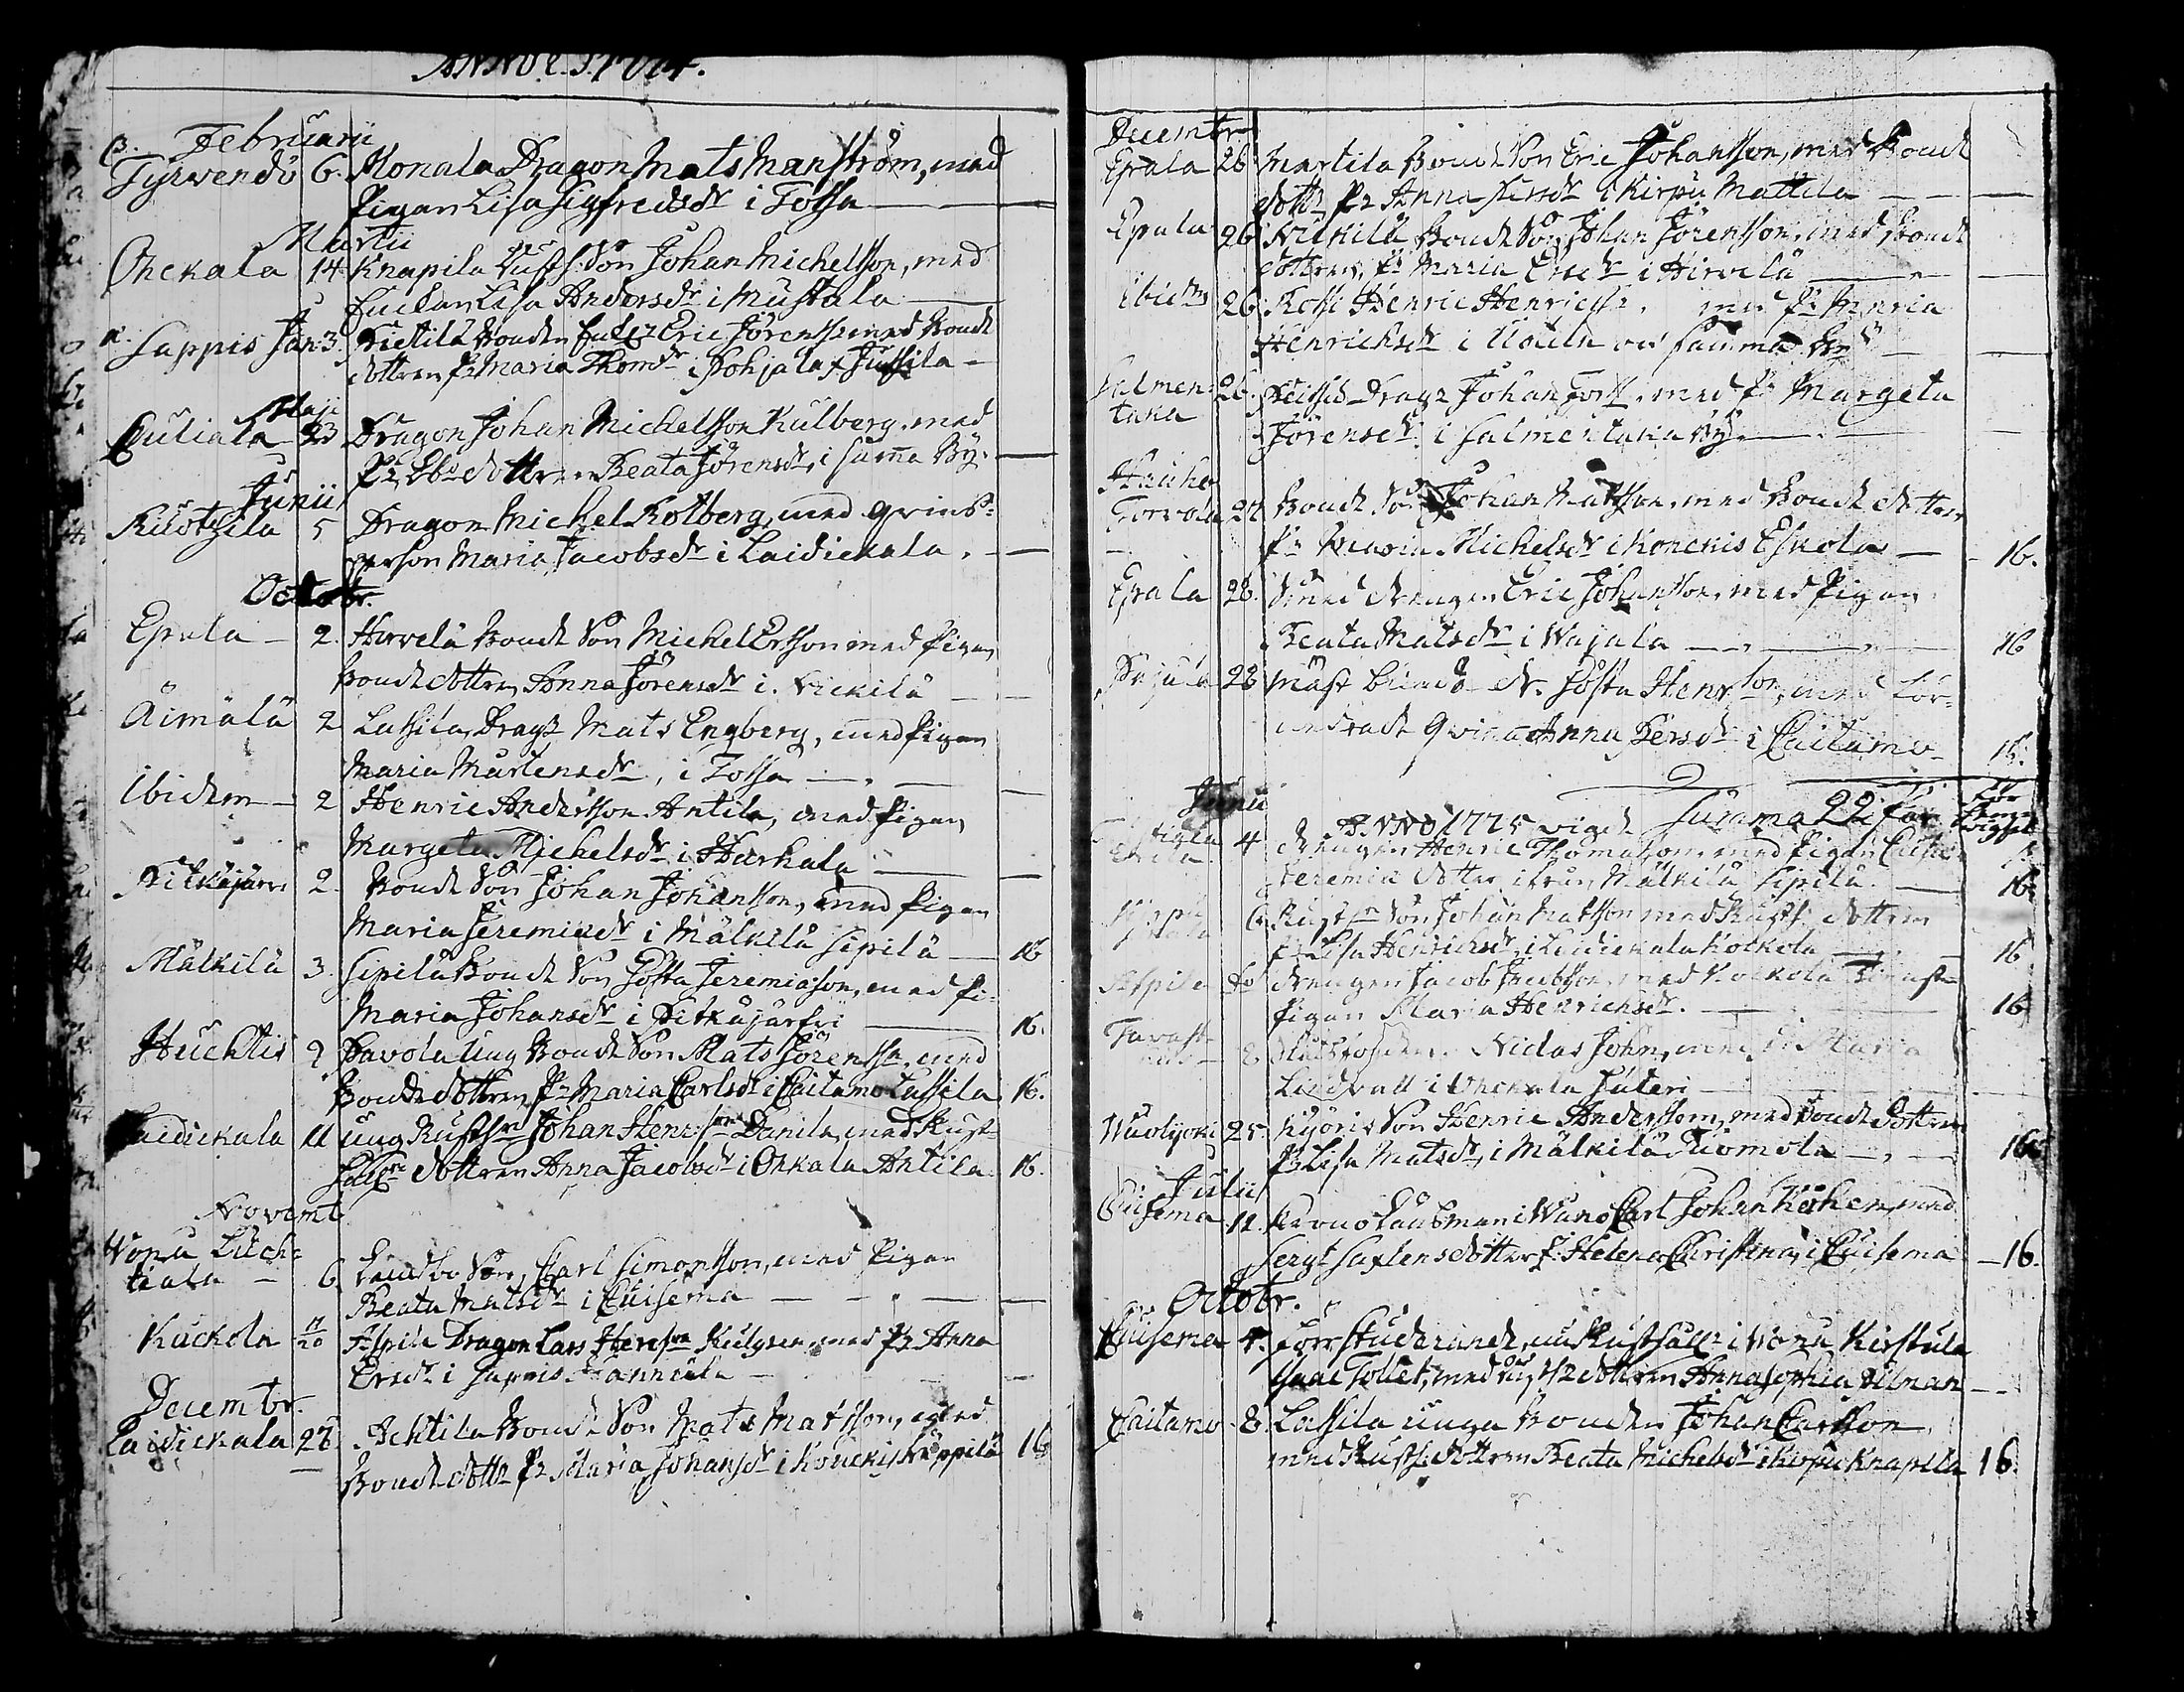 ANNO C. S. 1774.
Februarii
Tyrwendö 6. Konala Dragon Mats Manström, med
Pigan Lisa Sigfredsdr i Tolsa
Martii
Onckala 14 Knapila Rusth: Son Johan Michelsson, med
Enckan Lisa Andersdr i Mustala
Sappis Jan 3. Eric Jörenss med Bonde
dottren Pz Maria Thomdr i Pohjala Jussila
Maji
Culiala 23 Dragon Johan Michelsson Kulberg, med
dottren Beata Jörensdr, i samma By.
Junii
Kuotsila 5 Dragon Michel Rotberg, med qvins-
person Maria Jacobsdr i Laidickala.
Octobr.
Eprala 2. Hirvelä Bonde Son Michel Ersson med Pigan
Bonde dottren Anna Jörensdr i Nickilä
Äimälä 2 Lassila Dragz Mats Engberg, med Pigan
Maria Mårtensdr, i Tolsa
Ibidem 2 Henric Andersson Antila, med Pigan
Margeta Michelsdr i Harhala
Pitkäjärvi 2. Bonde Son Johan Johansson, med Pigan
Maria Jeremiædr i Mälkilä Sipilä 16
Mälkilä 3. Sipilä Bonde Son Gösta Jeremiæson, med Pi-
Maria Johansdr i Pitkäjärfvi 16.
Huchtis 9 Pavola Ung Bonde Son Mats Jörenss. med
Bonde dottren Pz Maria Carlsdr i Caitamo Lassila 16.
Laidickala 11 ung Rusthn Johan Henrsson Danila, med Rust-
hålln dottren Anna Jacobsdr i Onkala Antila 16.
Novemb
Wonu Luch-
tiala 6 Son, Carl Simonsson, med Pigan
Beata Matsdr i Cuisema
Kuckola 11/20 Aspila Dragon Lars Henrsson med Pz Anna
Ersdr i Sappis Hannula
Decembr.
Laidickala 27. Achtila Bonde Son Mats Matsson, med
Bonde dottr Pz Maria Johansdr i Konckis Seppilä 16
Decembr
Eprala 26 Martila Bonde Son Eric Johansson, med Bonde
dottr Pz Anna i Kirpu Mattila
Eprala 26 Nickilä Bonde Son Johan Jörensson, med Bonde
dottren, Pz Maria Ersdr i Hirvelä
Ibidm 26 Rossi Henric Henricss. med Pz Maria
Henrichsdr i Uotila samma By
Salmen-
taka 26. Dragz Johan Fors. med Pz Margeta
Jörensdr i Salmentaka By
Hauho
Torvola 27 Bonde Son Johan Matsson, med Bonde dottren
Pz Maria Michelsdr i Konckis Eskola 16.
Eprala 28. drengen Eric Johansson, med Pigan
Beata Matsdr i Wajala 16
Pajula 28 Gösta Henrson, med för-
qvinna Anna Persdr i Caitamo 16.
Summa 22 Par
ANNO 1775 vigde
Junii
4 drengen Henric Thomasson, med Pigan
Jeremiæ dotter ifrån Mälkilä Sipilä. 16.
6 Rusthn Son Johan Matsson med Rusth: dottren
Pz Lisa Henrichsdr, i Laidickala Kockola 16
Aspila do drengen Jacob Jacobson, med Kockola
Pigan Maria Henrichsdr. 16
Tavast- 8 Niclas John, med Pz Maria
Lindvall i Onckala Säteri
Wuolijoki 25. Kyöris Son Henric Andersson, med Bonde dottren
Pz Lisa Matsdr, i Mälkilä Tuomola 16
Julii
Cuisema 11. Krono Länsman i Wano Carl Johan Köhen, med
Sergt Saxlens dotter Pz Helena Christina, i Cuisema 16.
Octobr.
Cuisema 4. Förr Studerande, nu Rusthållz i Wonu Kirstula
Isaac Tollet, med dottren Anna Sophia Ulman
Caitamo 8. Lassila unga Bonden Johan Carlsson
med Rusth. dottren Beata Michelsdr i Kirpu Knapila 16.